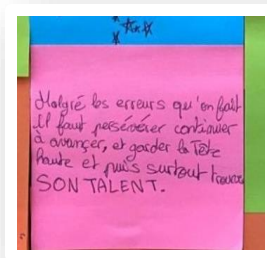 Malgré les erreurs qu'on fait
Il faut persévérer continuer
à avancer, et garder la Tête
haute et puis surtout trouver
SON TALENT.